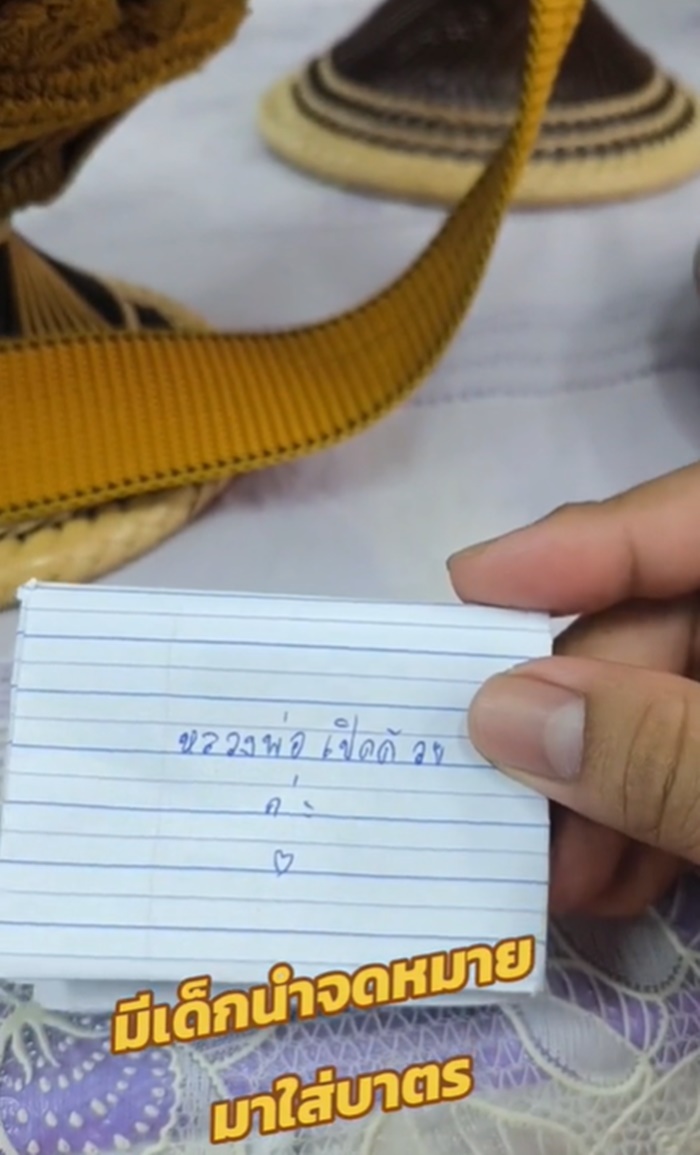 หลวงพ่อ เปิดด้วย
ค่ะ
♡
มีเด็กนำจดหมาย
มาใส่บาตร